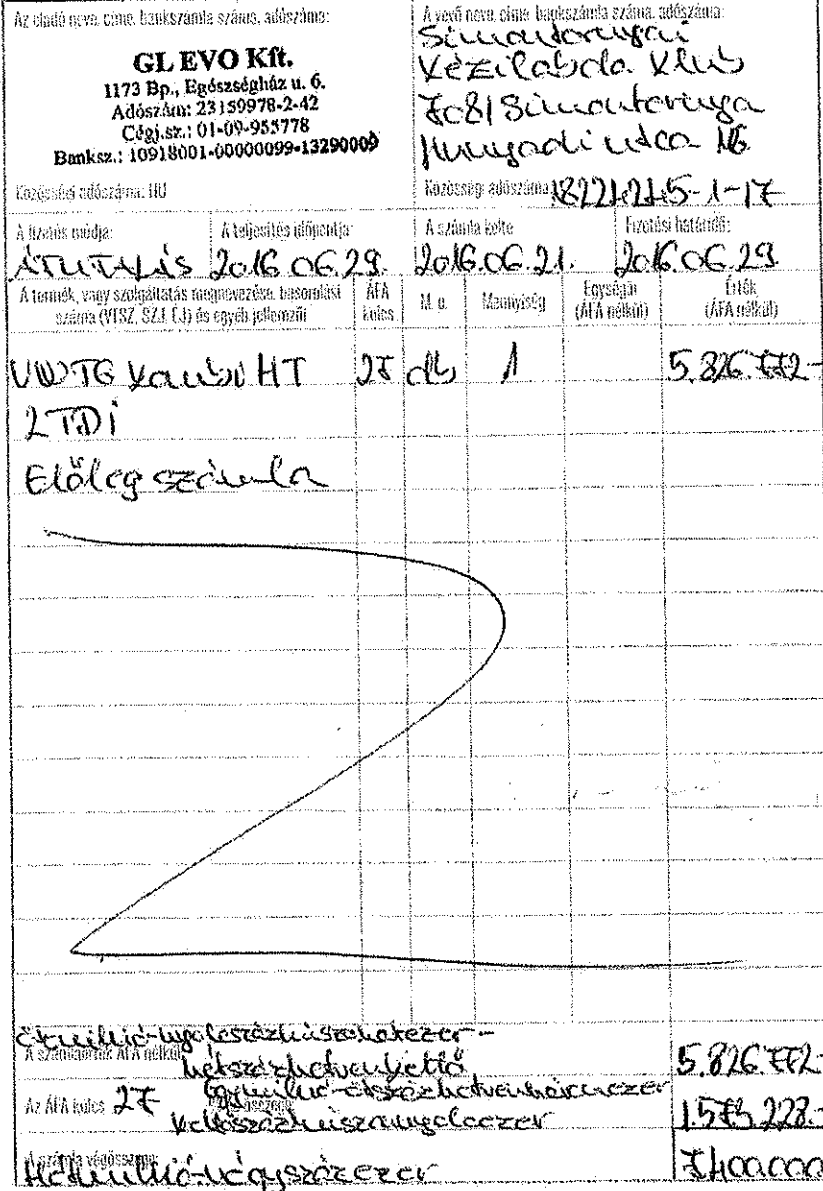 Az eladó neve, címe, bankszámla száma, adószáma:
GL EVO Kft.
1173 Bp., Egészségház u. 6.
Adószám: 23159978-2-42
Cégj.sz.: 01-09-955778
Banksz.: 10918001-00000099-13290009
Közösségi adószáma: HU
A vevő neve, címe, bankszámla száma, adószáma:
Simontornyai
Kézilabda Klub
7081 Simontornya
Hunyadi utca 16
Közösségi adószáma: 18221215-1-17
A fizetés módja: A teljesítés időpontja: A számla kelte Fizetési határidő:
ÁTUTALÁS 2016.06.29. 2016.06.21. 2016.06.29
A termék, vagy szolgáltatás megnevezése, besorolási száma (VTSZ, SZJ, EJ) és egyéb jellemzői
ÁFA kulcs
M. e.
Mennyiség
Egységár (ÁFA nélkül)
Érték (ÁFA nélkül)
VW T6 Kombi HT 27 db 1 5.826.772-
2 TDi
Előleg számla
ötmillió-nyolcszázhuszonhatezer-
A számlaérték ÁFA nélkül
hétszázhetvenkettő 5.826.772-
Az ÁFA kulcs 27 egymillió-ötszázhetvenháromezer
1.573.228.-
A számla végösszege:
Hétmillió-négyszázezer 7.400.000